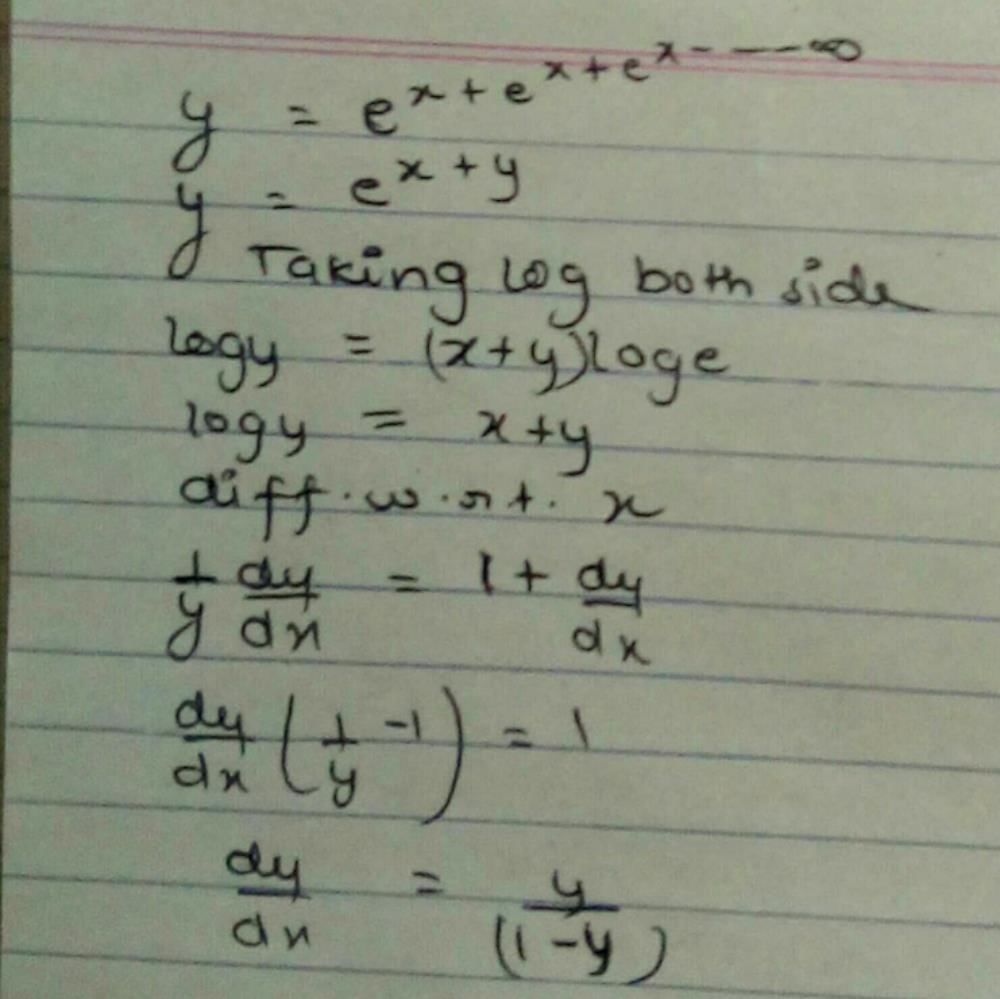 y = e^{x+e^{x+e^{x----∞}}}
y = e^{x+y}
Taking log both side
logy = (x+y)loge
logy = x+y
diff.w.r.t. x
1/y dy/dx = 1 + dy/dx
dy/dx (1/y -1) = 1
dy/dx = y/(1-y)